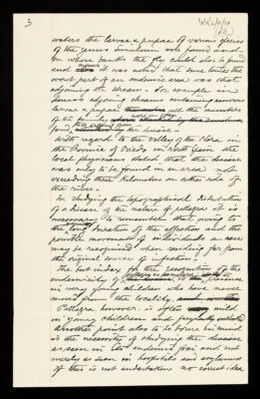 3
waters the larvae & pupae of various species
of the genus Simulium were found and
on whose banks the fly could also be found
and it was noted that some times the
worst part of an endemic area was that
adjoining the stream. For example in
houses adjoining streams containing numerous
larvae & pupae all the members
of the family were
found the disease.
With regard to the valley of the Nora in
the Province of Oviedo in North Spain the
local physicians stated that the disease
was only to be found in an area not
exceeding three kilometers on either side of
the river.
In studying the topographical distribution
of a disease of the nature of pellagra it is
necessary to remember that owing to
the long duration of the affection and the
possible movements of individuals a case
may be recognised when residing far from
the original source of infection.
The best index for the recognition of the
endemicity of is the presence
in very young children who have never
moved from the locality
Pellagra however is often mild
in young children and frequently overlooked
Another point also to be borne in mind
is the necessity of studying the disease
as seen in the endemic foci and not
merely as seen in hospitals and asylums
if this is not undertaken no correct idea